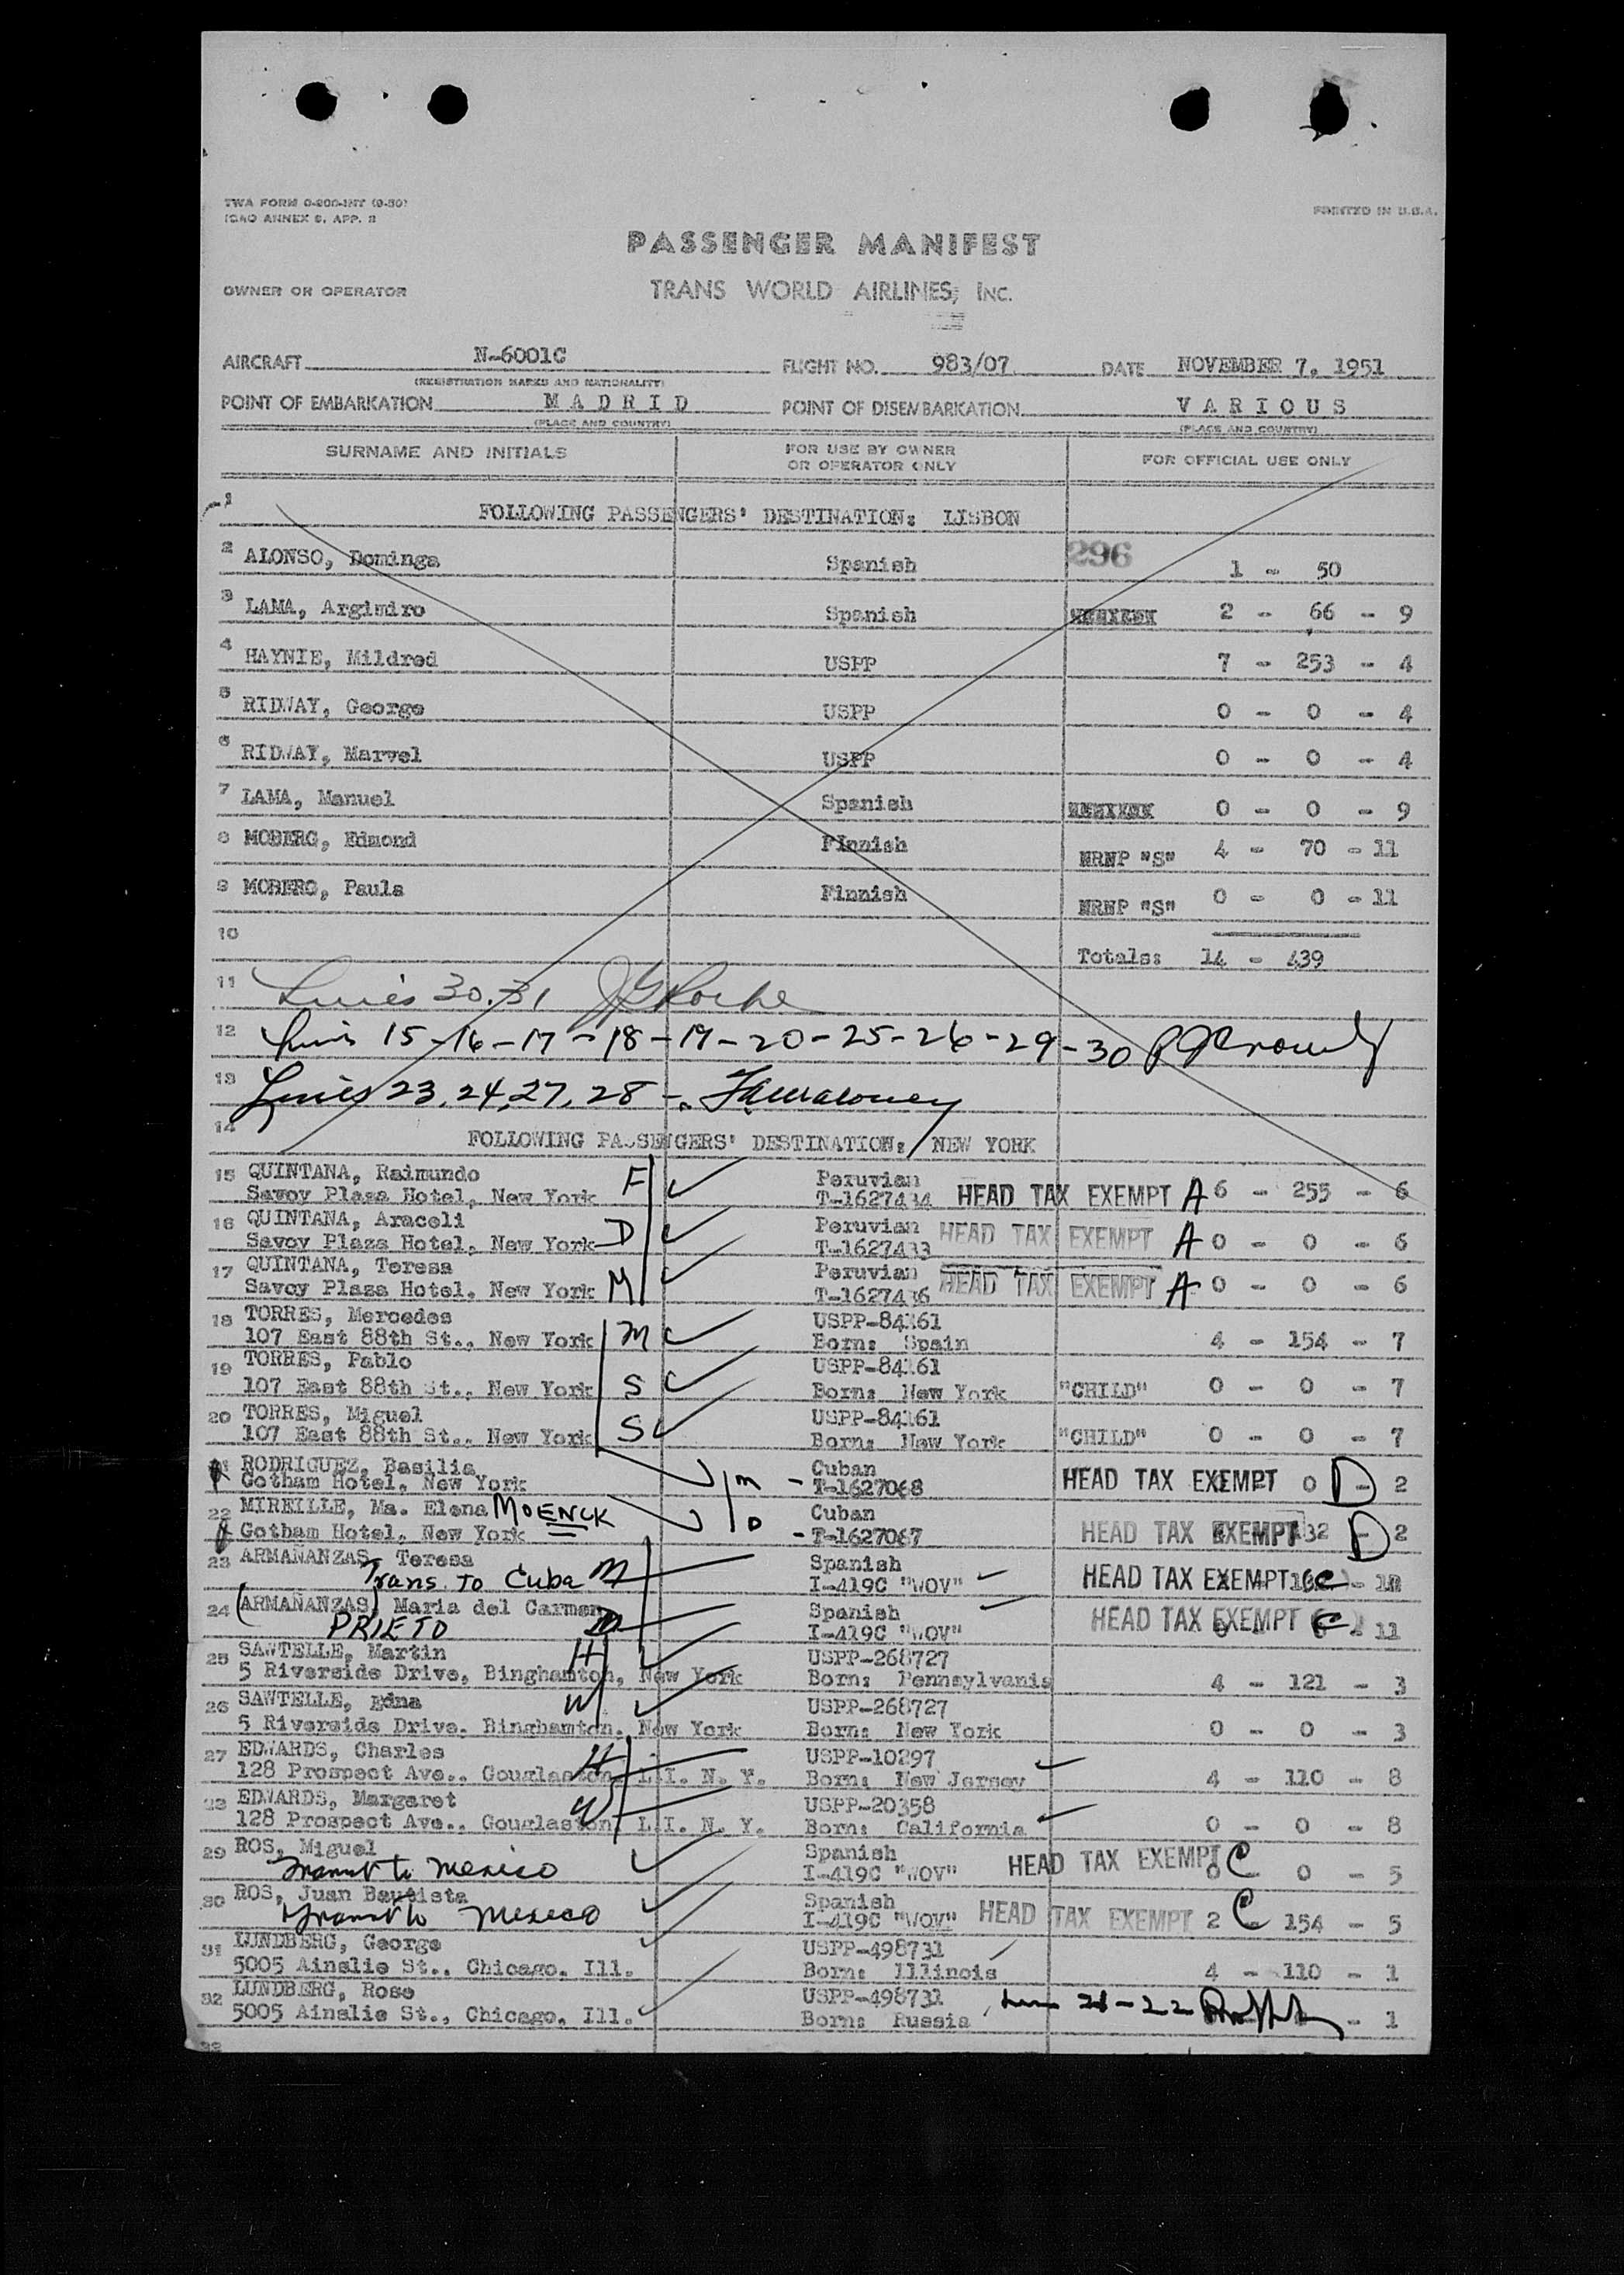 TWA FORM O-200-INT (9-50)
ICAO ANNEX 9, APP. B
PRINTED IN U.S.A.
PASSENGER MANIFEST
OWNER OR OPERATOR
TRANS WORLD AIRLINES, INC.
AIRCRAFT N-6001C FLIGHT NO. 983/07 DATE NOVEMBER 7, 1951
(REGISTRATION MARKS AND NATIONALITY)
POINT OF EMBARKATION M A D R I D POINT OF DISEMBARKATION V A R I O U S
(PLACE AND COUNTRY) (PLACE AND COUNTRY)
SURNAME AND INITIALS FOR USE BY OWNER OR OPERATOR ONLY FOR OFFICIAL USE ONLY
1 FOLLOWING PASSENGERS' DESTINATION: LISBON
2 ALONSO, Dominga Spanish 296 1 - 50
3 LAMA, Argimiro Spanish 2 - 66 - 9
4 HAYNIE, Mildred USPP 7 - 253 - 4
5 RIDWAY, George USPP 0 - 0 - 4
6 RIDWAY, Marvel USPP 0 - 0 - 4
7 LAMA, Manuel Spanish 0 - 0 - 9
8 MOBERG, Edmond FInnish NRNP "S" 4 - 70 - 11
9 MOBERG, Paula Finnish NRNP "S" 0 - 0 - 11
10 Totals: 14 - 439
11 Lines 30.31 JG Roche
12 Lines 15-16-17-18-19-20-25-26-29-30
13 Lines 23,24,27,28 -
14 FOLLOWING PASSENGERS' DESTINATION: NEW YORK
15 QUINTANA, Raimundo F Peruvian
Savoy Plaza Hotel, New York T-1627434 HEAD TAX EXEMPT A 6 - 255 - 6
16 QUINTANA, Araceli D Peruvian
Savoy Plaza Hotel, New York T-1627433 HEAD TAX EXEMPT A 0 - 0 - 6
17 QUINTANA, Teresa M Peruvian
Savoy Plaza Hotel, New York T-1627436 HEAD TAX EXEMPT A 0 - 0 - 6
18 TORRES, Mercedes M USPP-84161
107 East 88th St., New York Born: Spain 4 - 154 - 7
19 TORRES, Pablo S USPP-84161
107 East 88th St., New York Born: New York "CHILD" 0 - 0 - 7
20 TORRES, Miguel S USPP-84161
107 East 88th St., New York Born: New York "CHILD" 0 - 0 - 7
21 RODRIGUEZ, Basilia m - Cuban
Gotham Hotel, New York T-1627068 HEAD TAX EXEMPT 0 D - 2
22 MIREILLE, Ma. Elena MOENCK D Cuban
Gotham Hotel, New York - T-1627067 HEAD TAX EXEMPT 132 D 2
23 ARMAÑANZAS, Teresa M Spanish
Trans. To Cuba I-419C "WOV" HEAD TAX EXEMPT C
24 (ARMAÑANZAS) Maria del Carmen D Spanish
PRIETO I-419C "WOV" HEAD TAX EXEMPT C 11
25 SAWTELLE, Martin H USPP-268727
5 Riverside Drive, Binghamton, New York Born: Pennsylvania 4 - 121 - 3
26 SAWTELLE, Edna W USPP-268727
5 Riverside Drive. Binghamton. New York Born: New York 0 - 0 - 3
27 EDWARDS, Charles H USPP-10297
128 Prospect Ave.. Gouglaston. L.I. N. Y. Born: New Jersey 4 - 110 - 8
28 EDWARDS, Margaret W USPP-20358
128 Prospect Ave.. Gouglaston. L.I. N. Y. Born: California 0 - 0 - 8
29 ROS, Miguel Spanish
Transit to Mexico I-419C "WOV" HEAD TAX EXEMPT C 0 - 0 - 5
30 ROS, Juan Bautista Spanish
Transit to Mexico I-419C "WOV" HEAD TAX EXEMPT 2 C 154 - 5
31 LUNDBERG, George USPP-498731
5005 Ainslie St., Chicago. Ill. Born: Illinois 4 - 110 - 1
32 LUNDBERG, Rose USPP-498731 Lines 21-22
5005 Ainslie St., Chicago. Ill. Born: Russia - 1
33